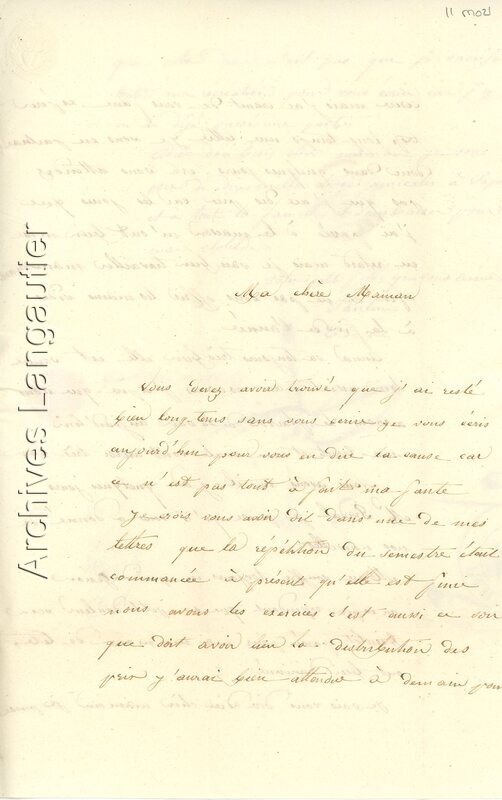 11 mozl
Archives Langautier
Ma chère Maman
Vous devez avoir trouvé que j'ai resté
bien long-tems sans vous écrire je vous écris
aujourd'hui pour vous en dire la cause car
ce n'est pas tout à fait ma faute
Je crois vous avoir dit dans une de mes
lettres que la répétition du semestre était
commancée à présent qu'elle est finie
nous avons les exercices c'est aussi ce soir
que doit avoir lieu la distribution des
prix j'aurai bien attendue à demain pour